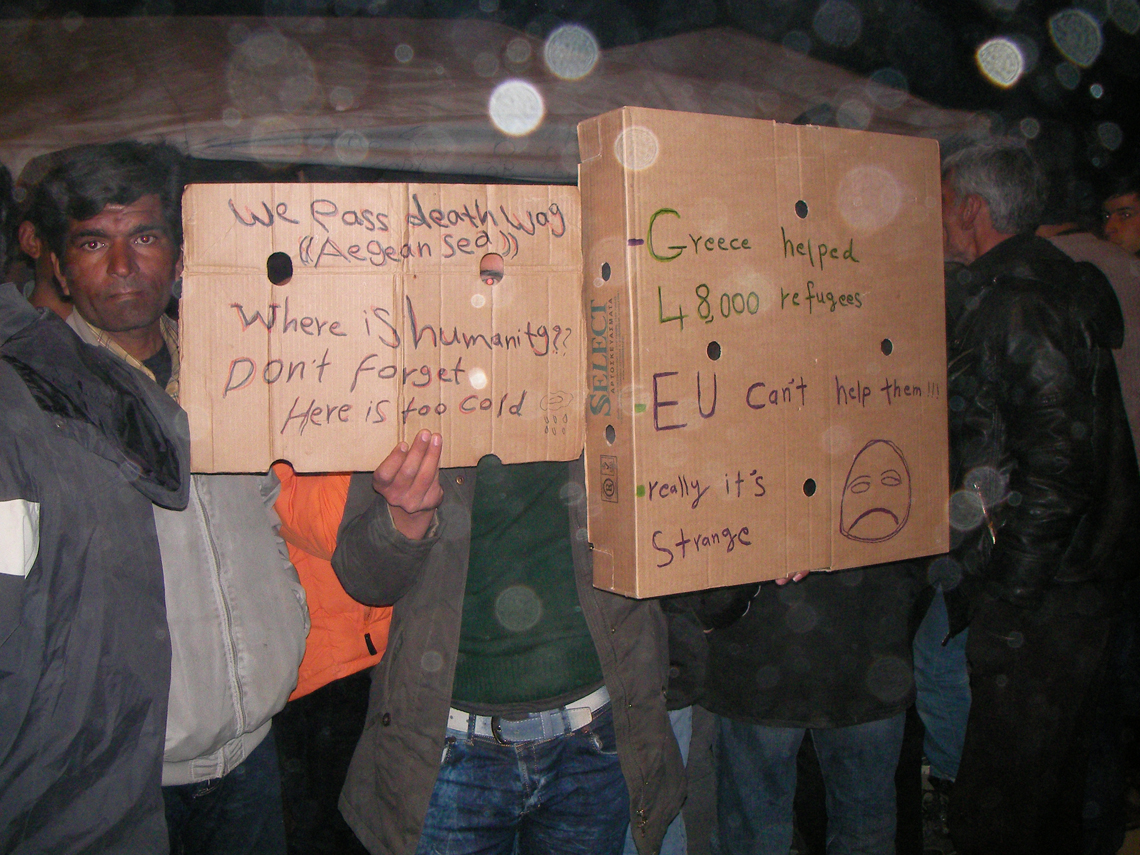 We Pass death way
((Aegean Sea))
Where is humanity??
Don't forget
Here is too cold
- Greece helped
48,000 refugees
- EU can't help them!!!
- really it's
Strange
SELECT
ΑΡΤΟΣΚΕΥΑΣΜΑΤΑ